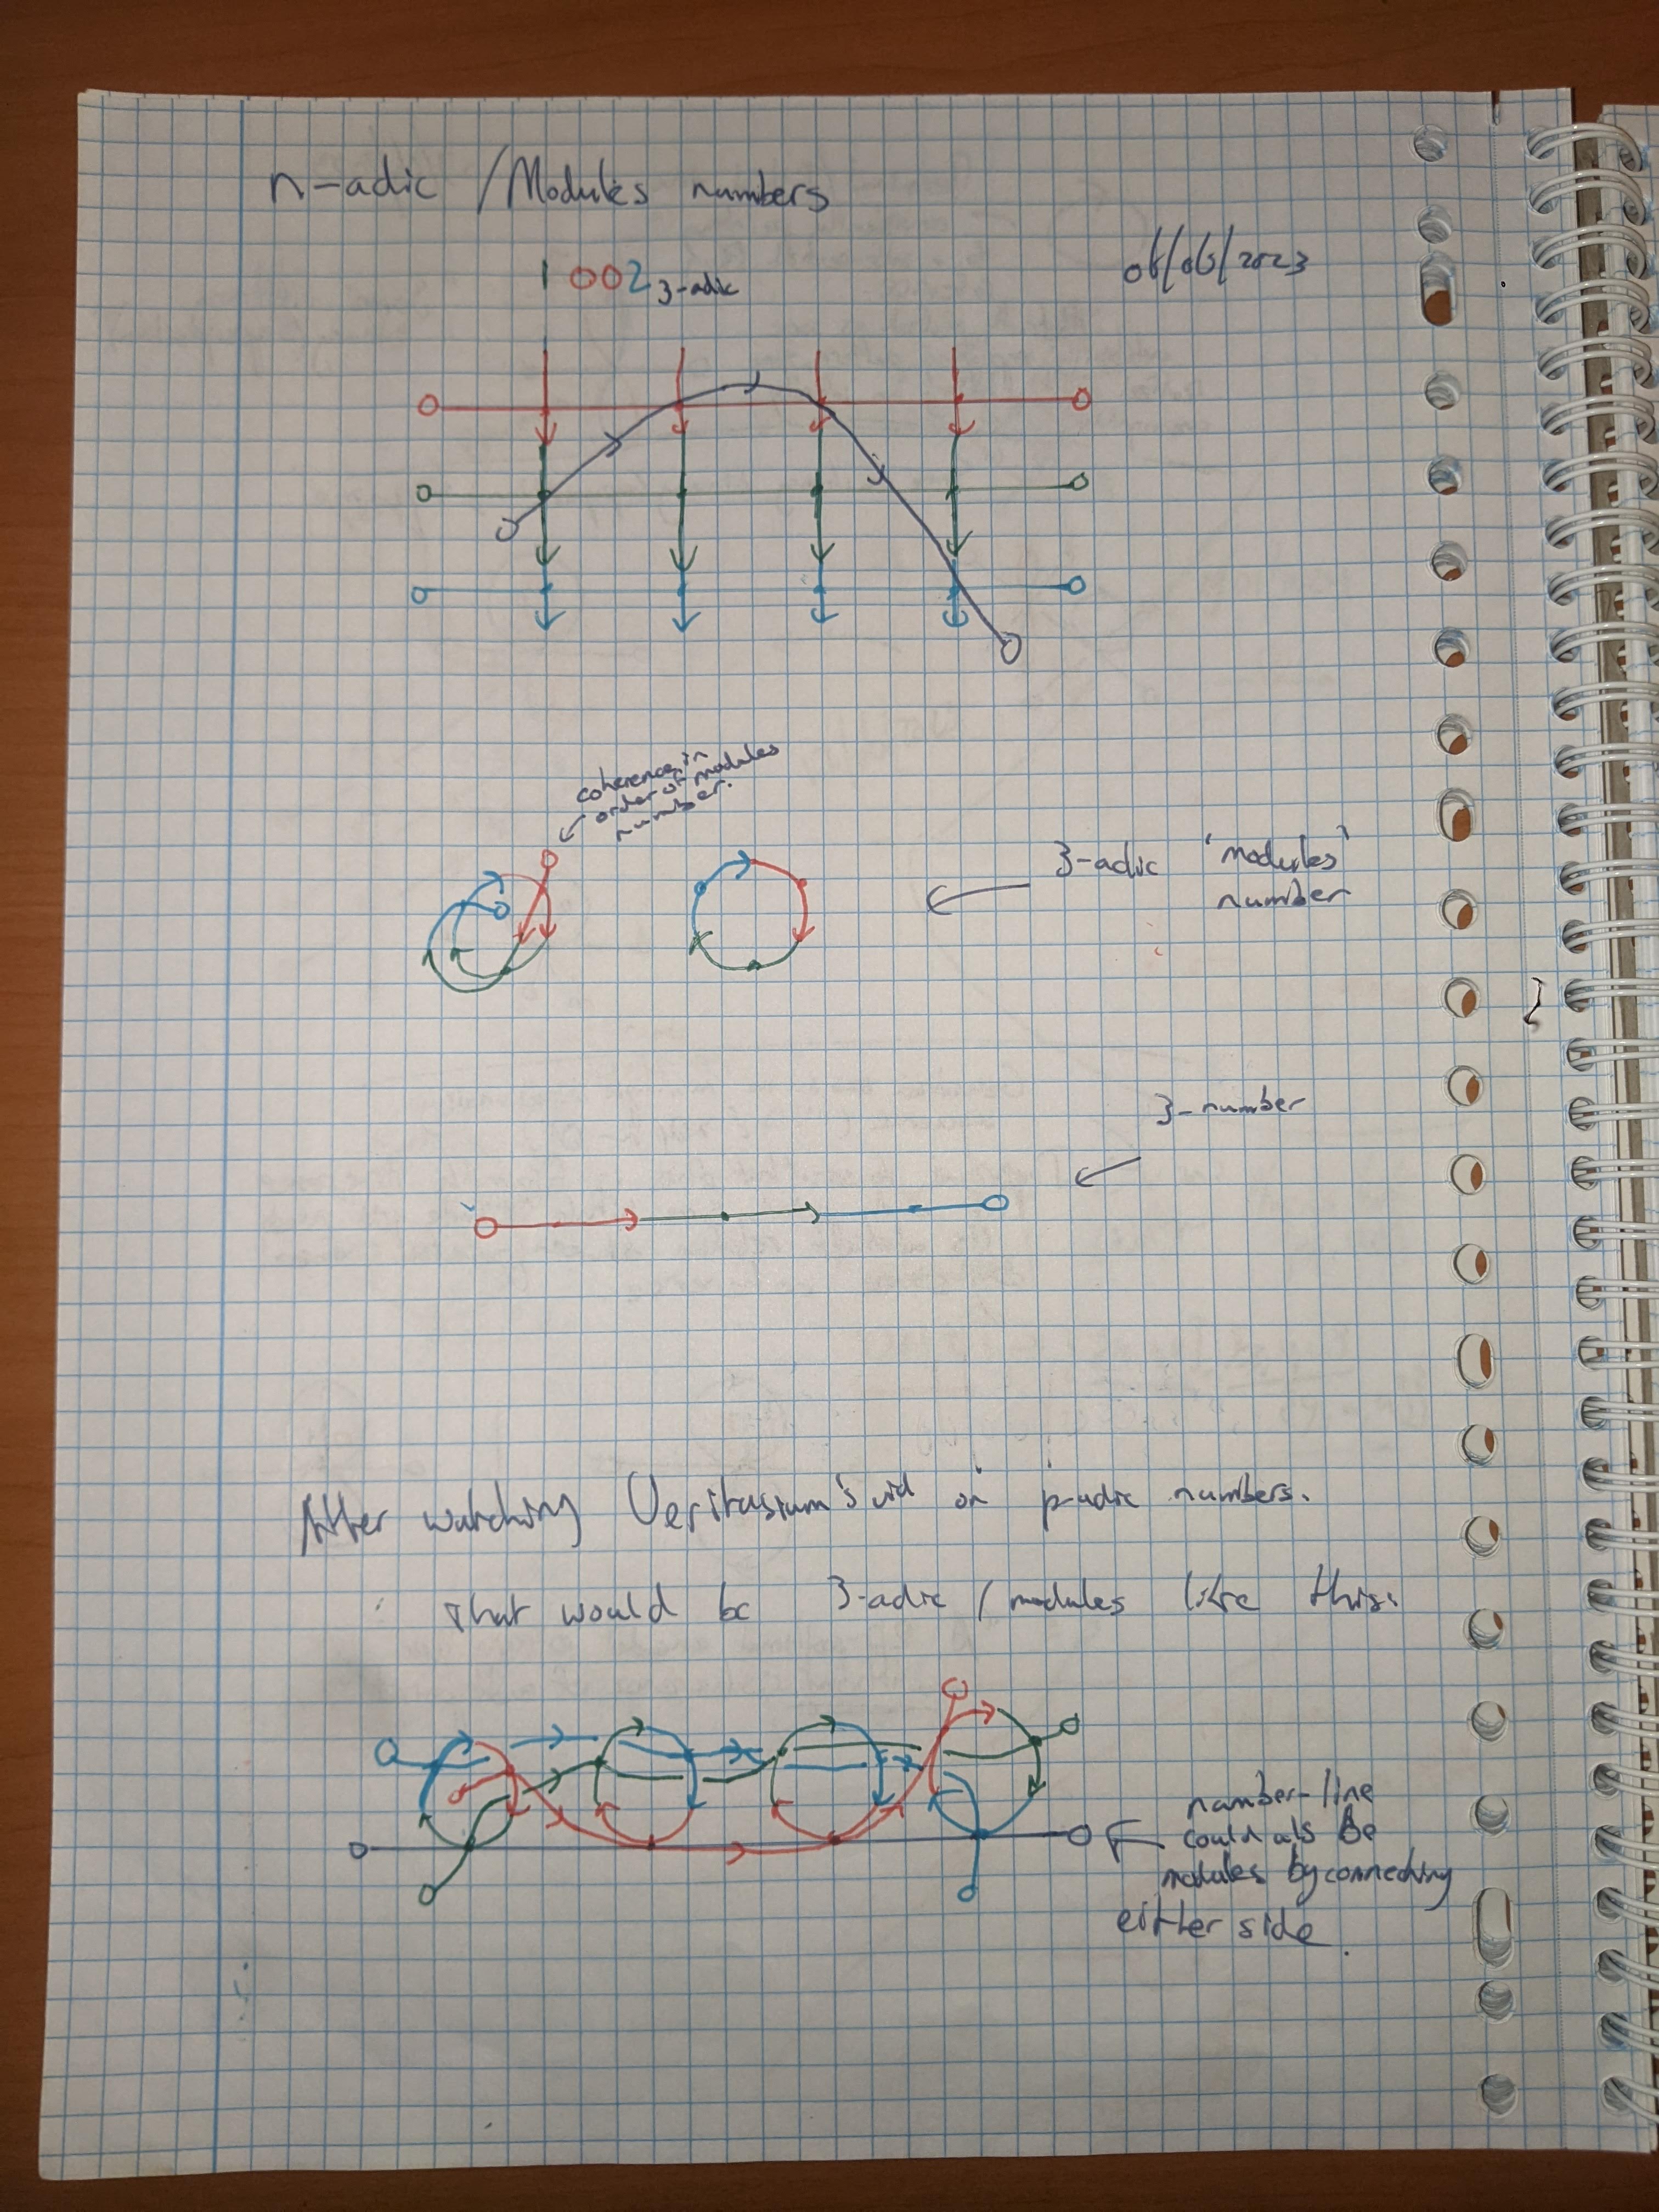 n-adic / Modules numbers
06/06/2023
1002 3-adic
coherence in
order of modules
number.
3-adic 'modules'
number
3-number
After watching Veritasium's vid on p-adic numbers.
That would be 3-adic / modules like this:
number-line
could als Be
modules by connecting
either side.